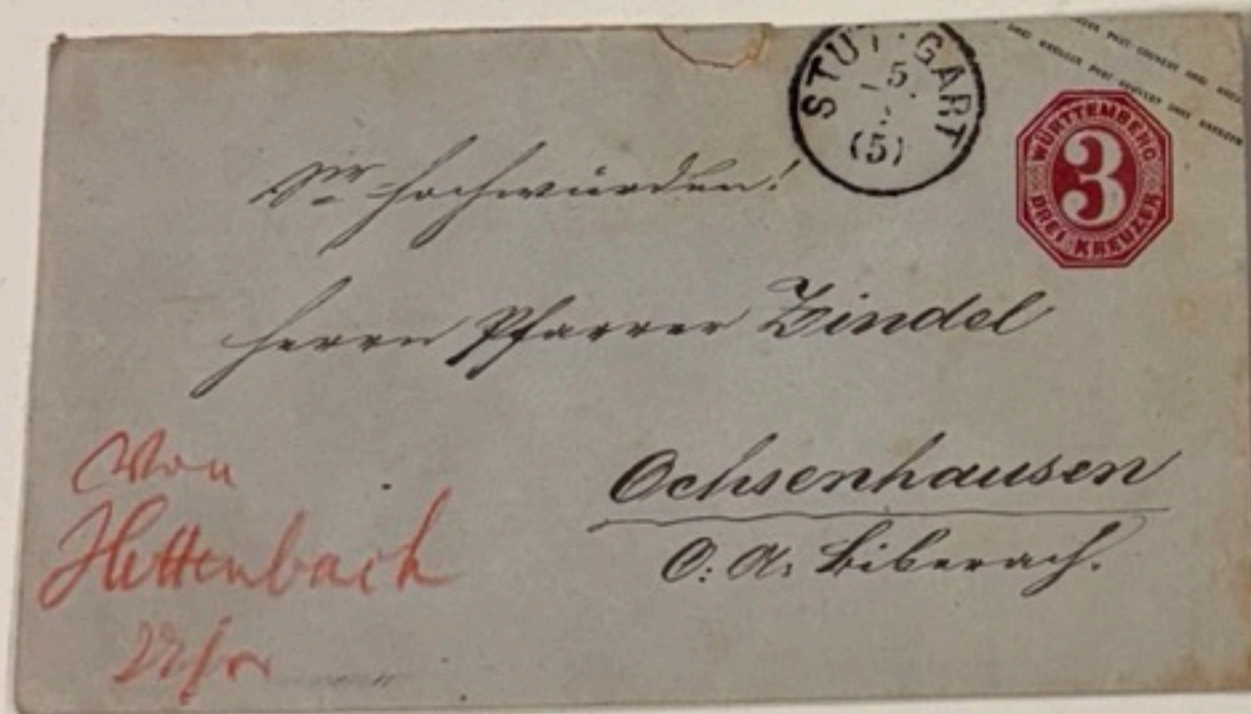 STUTTGART
5.
(5)
DREI KREUZER POST COUVERT DREI
DREI KREUZER POST COUVERT DREI KREUZER
WÜRTTEMBERG
3
DREI KREUZER
Sr. Hochwürden!
Herrn Pfarrer Zindel
Ochsenhausen
O: A: Biberach.
Von
Hettenbach